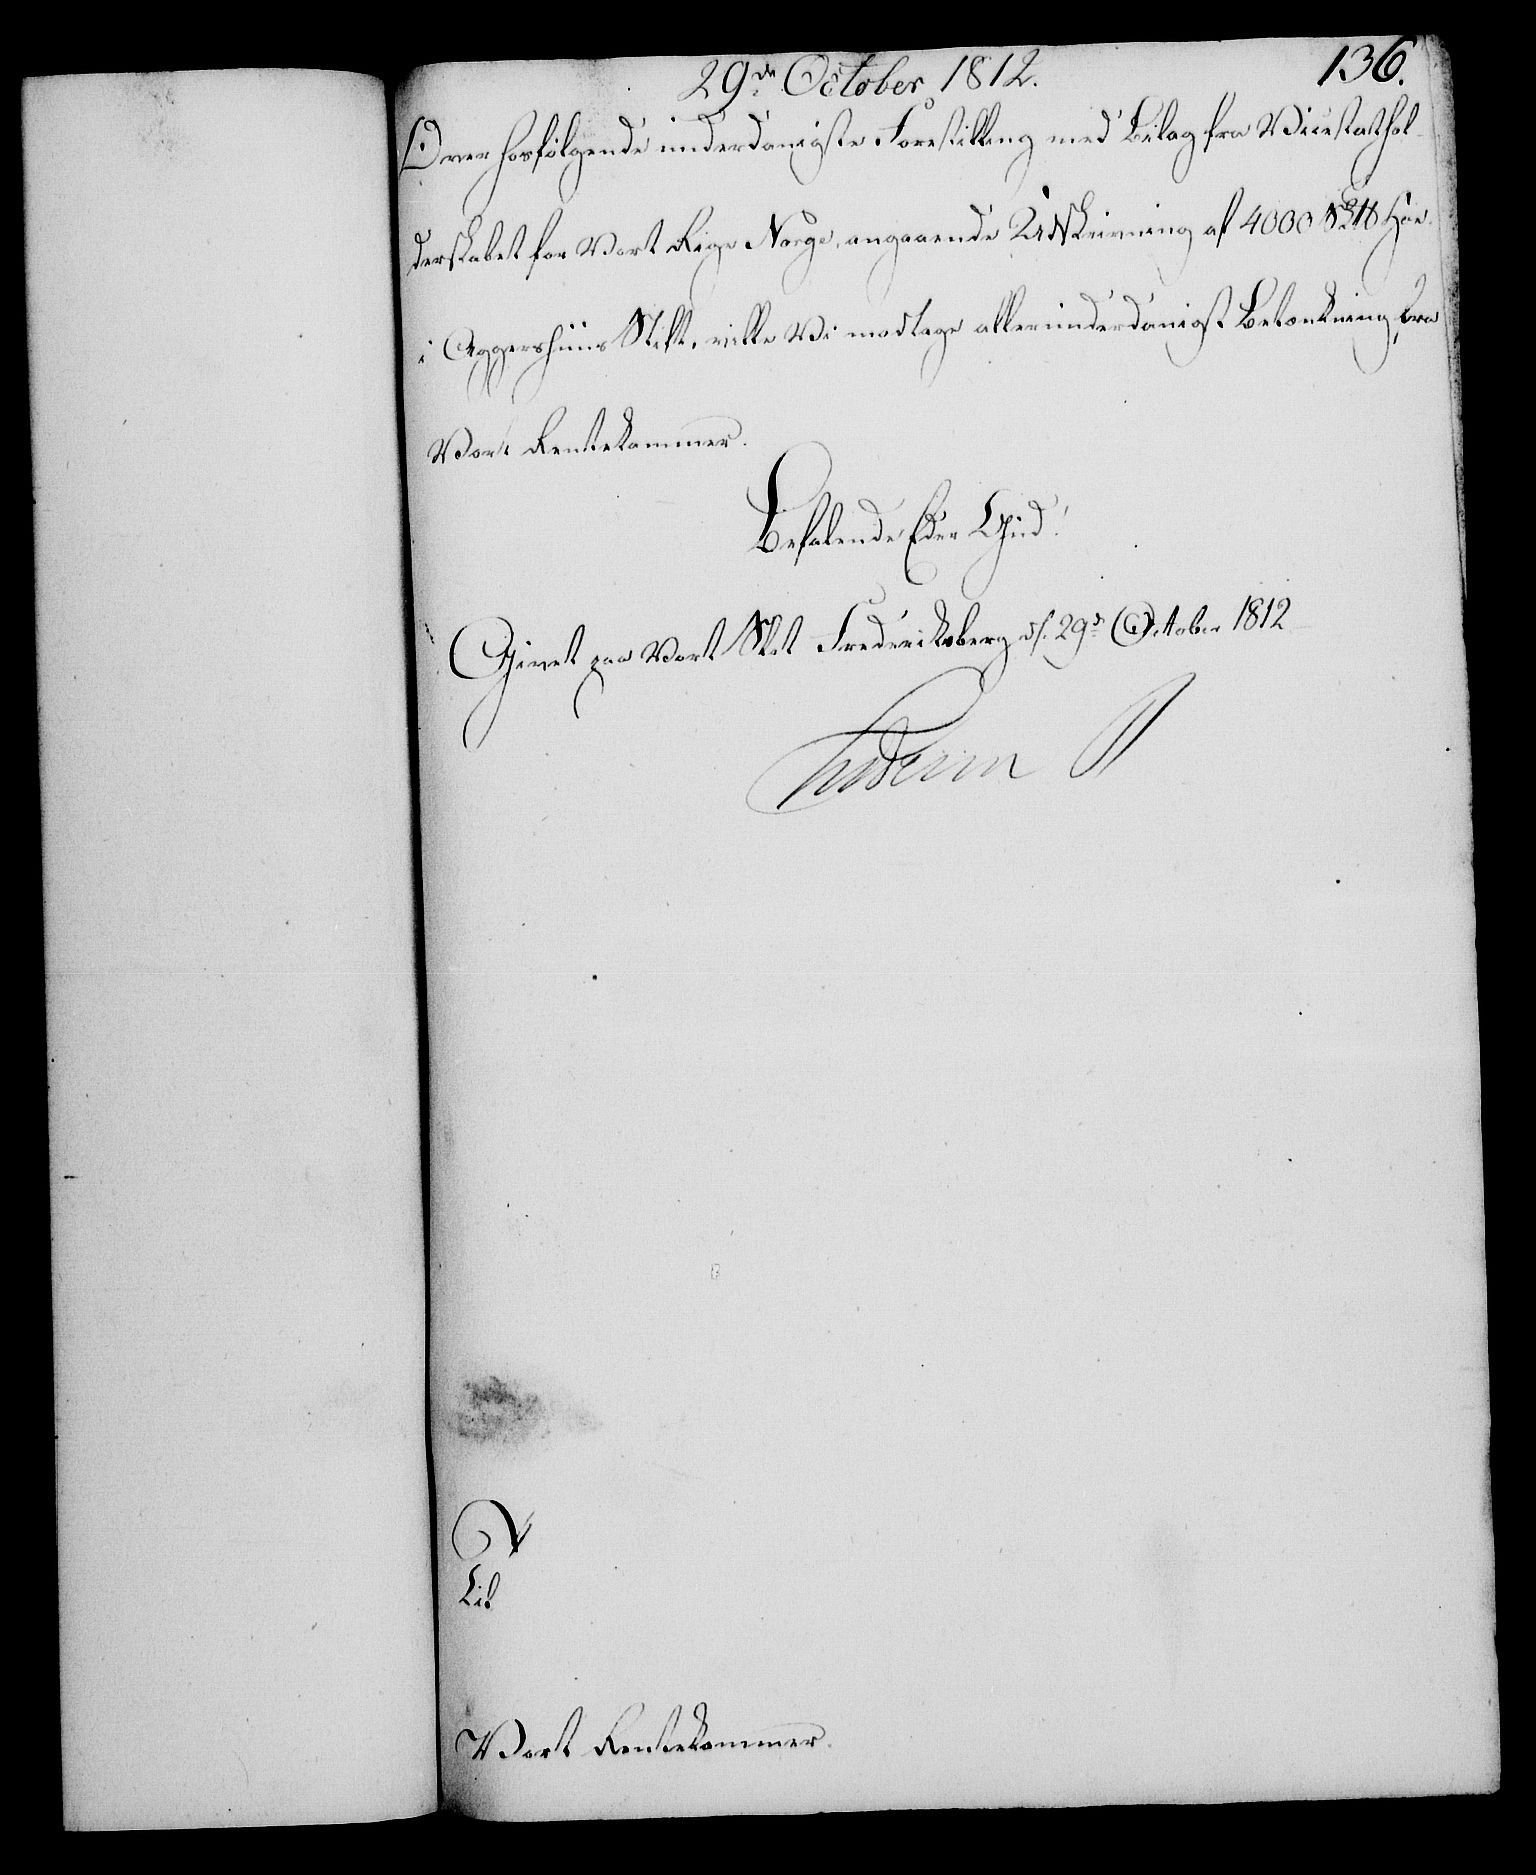 29de October 1812.
136.
Over hosfølgende underdanigste Forestilling med Bilag fra Vicestathol-
derskabet for Vort Rige Norge, angaaende Udskrivning af 4000 Höe
i Aggershuus Stift, ville Vi modtage allerunderdanigst Betænkning fra
Vort Rentekammer.
Befalende Eder Gud!
Givet paa Vort Slot Frederiksberg d. 29d October 1812
Frederik R
Til
Vort Rentekammer.